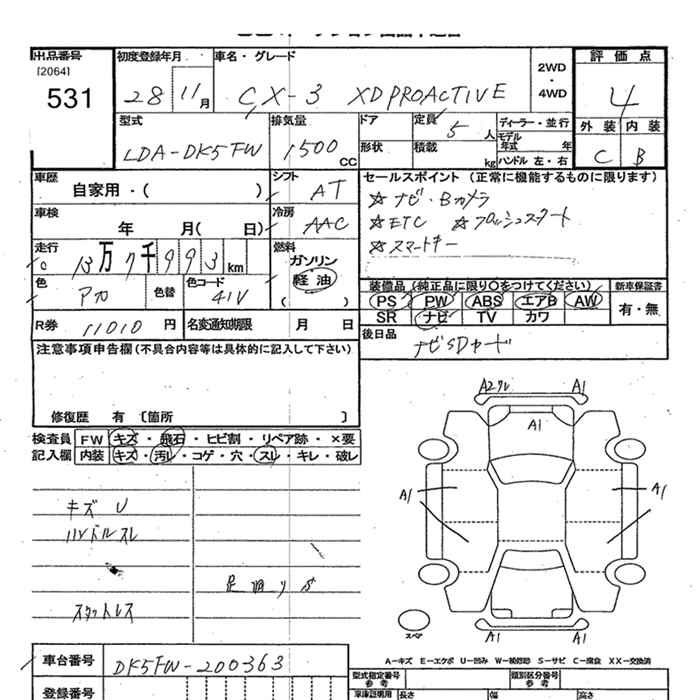 出品番号 初度登録年月 車名・グレード 2WD・4WD 評価点
[2064]
531 28 11月 CX-3 XD PROACTIVE 4
型式 排気量 ドア 定員 5人 ディーラー・並行 外装 内装
LDA-DK5FW 1500CC 形状 積載 kg モデル年式 年 C B
ハンドル 左・右
車歴 自家用・( ) シフト AT
セールスポイント (正常に機能するものに限ります)
☆ナビ・Bカメラ
☆ETC ☆プッシュスタート
☆スマートキー
車検 年 月( 日) 冷房 AAC
走行 13万7千993km 燃料 ガソリン 軽油 ( )
色 アカ 色替 色コード 41V
装備品 (純正品に限り○をつけてください) 新車保証書
PS PW ABS エアB AW 有・無
SR ナビ TV カワ
R券 11010円 名変通知期限 月 日
後日品 ナビSDカード
注意事項申告欄(不具合内容等は具体的に記入して下さい)
修復歴 有 〔箇所 〕
検査員 FW キズ・飛石・ヒビ割・リペア跡・×要
記入欄 内装 キズ・汚レ・コゲ・穴・スレ・キレ・破レ
キズ U
ハンドルスレ
足廻りサ
スタットレス
A2ワレ A1
A1
A1 A1
A1 A1
スペア
A-キズ E-エクボ U-凹み W-補修跡 S-サビ C-腐食 XX-交換済
車台番号 DK5FW-200363
型式指定番号 参考 類別区分番号 参考
登録番号 車庫証明用 長さ 幅 高さ